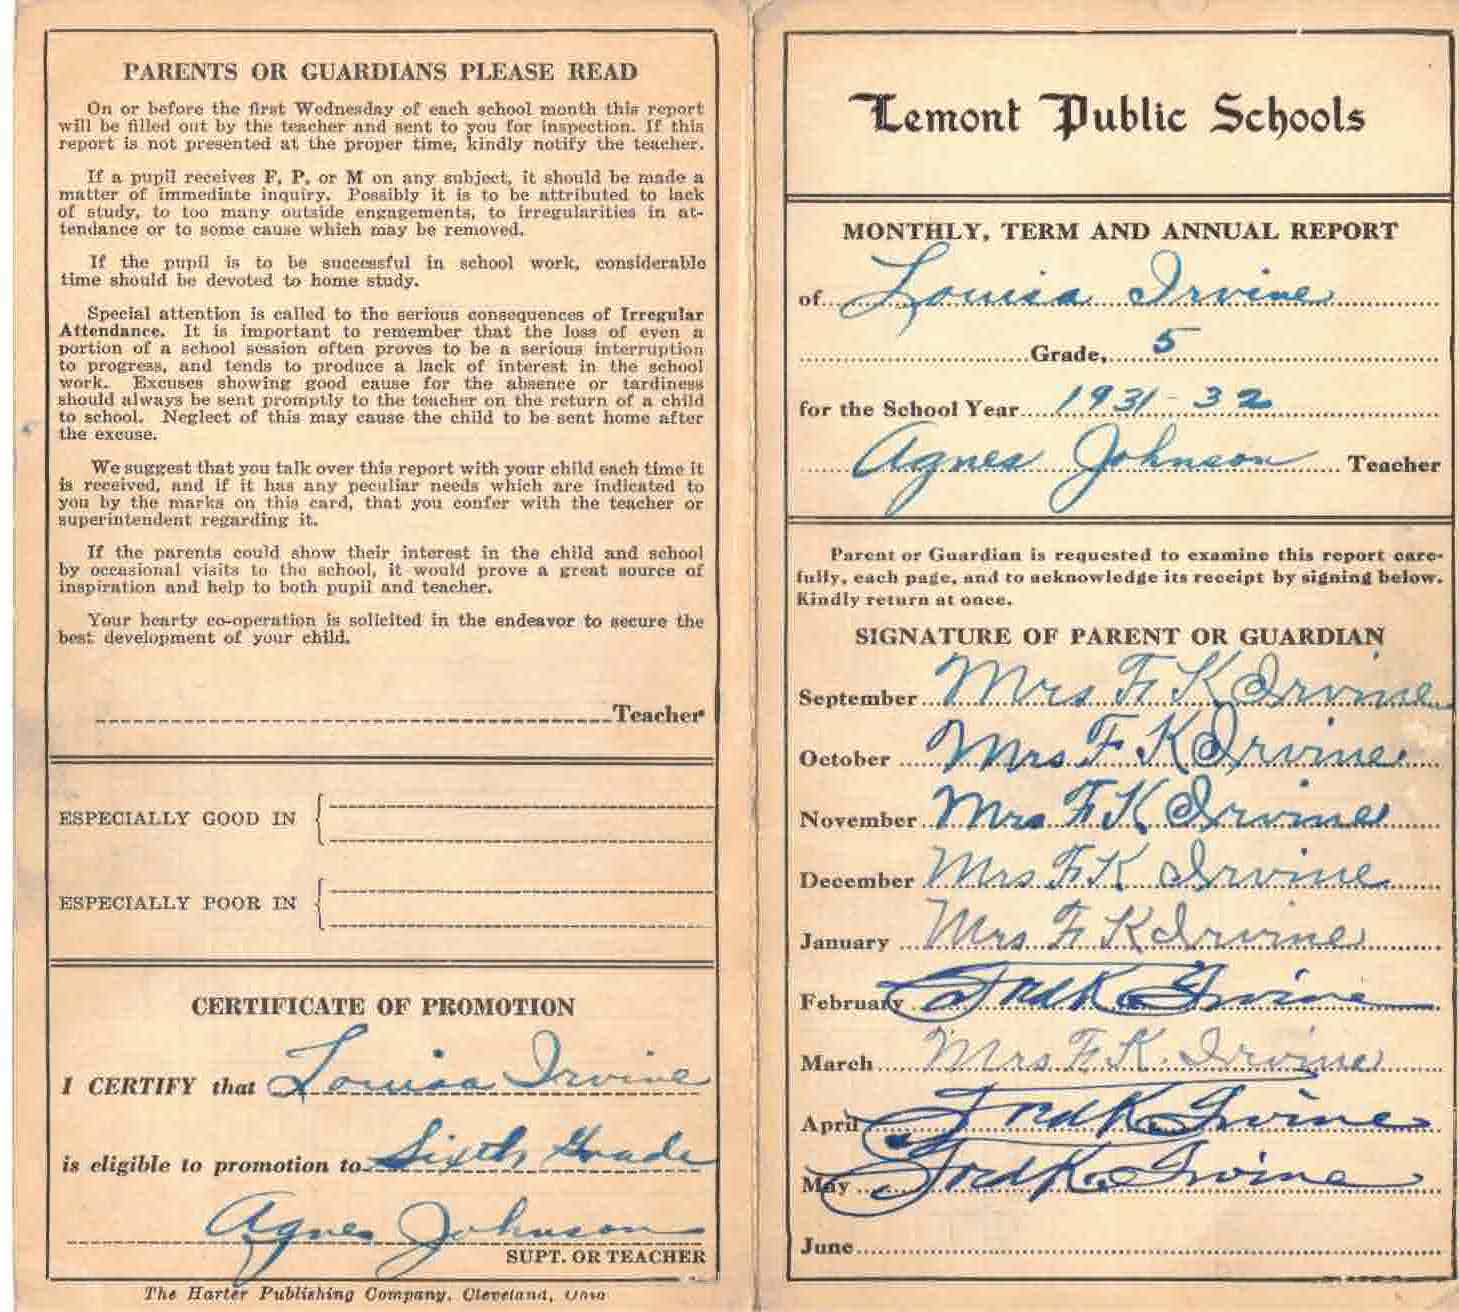 PARENTS OR GUARDIANS PLEASE READ
On or before the first Wednesday of each school month this report
will be filled out by the teacher and sent to you for inspection. If this
report is not presented at the proper time, kindly notify the teacher.
If a pupil receives F, P, or M on any subject, it should be made a
matter of immediate inquiry. Possibly it is to be attributed to lack
of study, to too many outside engagements, to irregularities in at-
tendance or to some cause which may be removed.
If the pupil is to be successful in school work, considerable
time should be devoted to home study.
Special attention is called to the serious consequences of Irregular
Attendance. It is important to remember that the loss of even a
portion of a school session often proves to be a serious interruption
to progress, and tends to produce a lack of interest in the school
work. Excuses showing good cause for the absence or tardiness
should always be sent promptly to the teacher on the return of a child
to school. Neglect of this may cause the child to be sent home after
the excuse.
We suggest that you talk over this report with your child each time it
is received, and if it has any peculiar needs which are indicated to
you by the marks on this card, that you confer with the teacher or
superintendent regarding it.
If the parents could show their interest in the child and school
by occasional visits to the school, it would prove a great source of
inspiration and help to both pupil and teacher.
Your hearty co-operation is solicited in the endeavor to secure the
best development of your child.
Teacher
ESPECIALLY GOOD IN
ESPECIALLY POOR IN
CERTIFICATE OF PROMOTION
I CERTIFY that Louisa Irvine
is eligible to promotion to Sixth Grade
Agnes Johnson
SUPT. OR TEACHER
The Harter Publishing Company, Cleveland, Ohio
Lemont Public Schools
MONTHLY, TERM AND ANNUAL REPORT
of Louisa Irvine
Grade, 5
for the School Year 1931-32
Agnes Johnson Teacher
Parent or Guardian is requested to examine this report care-
fully, each page, and to acknowledge its receipt by signing below.
Kindly return at once.
SIGNATURE OF PARENT OR GUARDIAN
September Mrs F K Irvine
October Mrs F K Irvine
November Mrs F K Irvine
December Mrs F K Irvine
January Mrs F K Irvine
February Fred K. Irvine
March Mrs F. K. Irvine
April Fred K. Irvine
May Fred K. Irvine
June